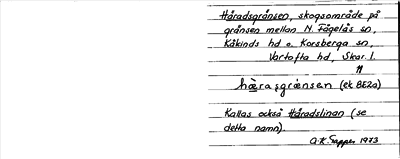 Håradsgränsen, skogsområde på
gränsen mellan N. Fågelås sn,
Kåkinds hd o. Korsberga sn,
Vartofta hd, Skar. l.
hæ̀raṣgrǽnsen (ek 8E2a)
Kallas också Håradslinan (se
detta namn).
1973